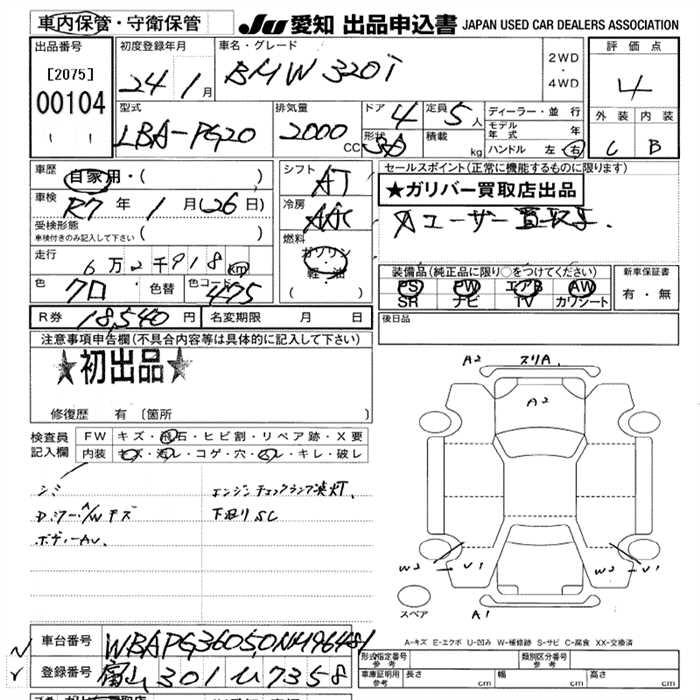 車内保管・守衛保管
JU 愛知 出品申込書 JAPAN USED CAR DEALERS ASSOCIATION
出品番号
[2075]
00104
初度登録年月
24 年 1月
車名・グレード
BMW 320i
2WD
・
4WD
評価点
4
外装 内装
C B
型式
LBA-PG20
排気量
2000 CC
ドア 4
形状
定員 5人
積載 kg
ディーラー・並行
モデル年式 年
ハンドル 左・右
車歴
自家用・( )
車検
R7年 1月(26日)
受検形態
車検付きのみ記入して下さい ( )
走行
6万2千918km
色 クロ 色替 色コード 475
R券 18,540円 名変期限 月 日
シフト
AT
冷房
AAC
燃料
ガソリン
・
軽・油
( )
セールスポイント(正常に機能するものに限ります)
★ガリバー買取店出品
ユーザー買取車.
装備品(純正品に限り○をつけてください)
PS PW エアB AW
SR ナビ TV カワシート
新車保証書
有・無
後日品
注意事項申告欄(不具合内容等は具体的に記入して下さい)
★初出品★
修復歴 有 〔箇所 〕
検査員記入欄
FW キズ・飛石・ヒビ割・リペア跡・X要
内装 キズ・汚レ・コゲ・穴・スレ・キレ・破レ
シミ
エンジンチェックランプ点灯.
D.ミラー.A/Wキズ
下廻りSC
A2 スリA.
A2
W2 V1 W2 V1
A1
スペア
A-キズ E-エクボ U-凹み W-補修跡 S-サビ C-腐食 XX-交換済
車台番号 WBAPG36050NM96481
登録番号 富山 301 ひ 7358
形式指定番号 参考
類別区分番号 参考
車庫証明用 参考 長さ cm 幅 cm 高さ cm